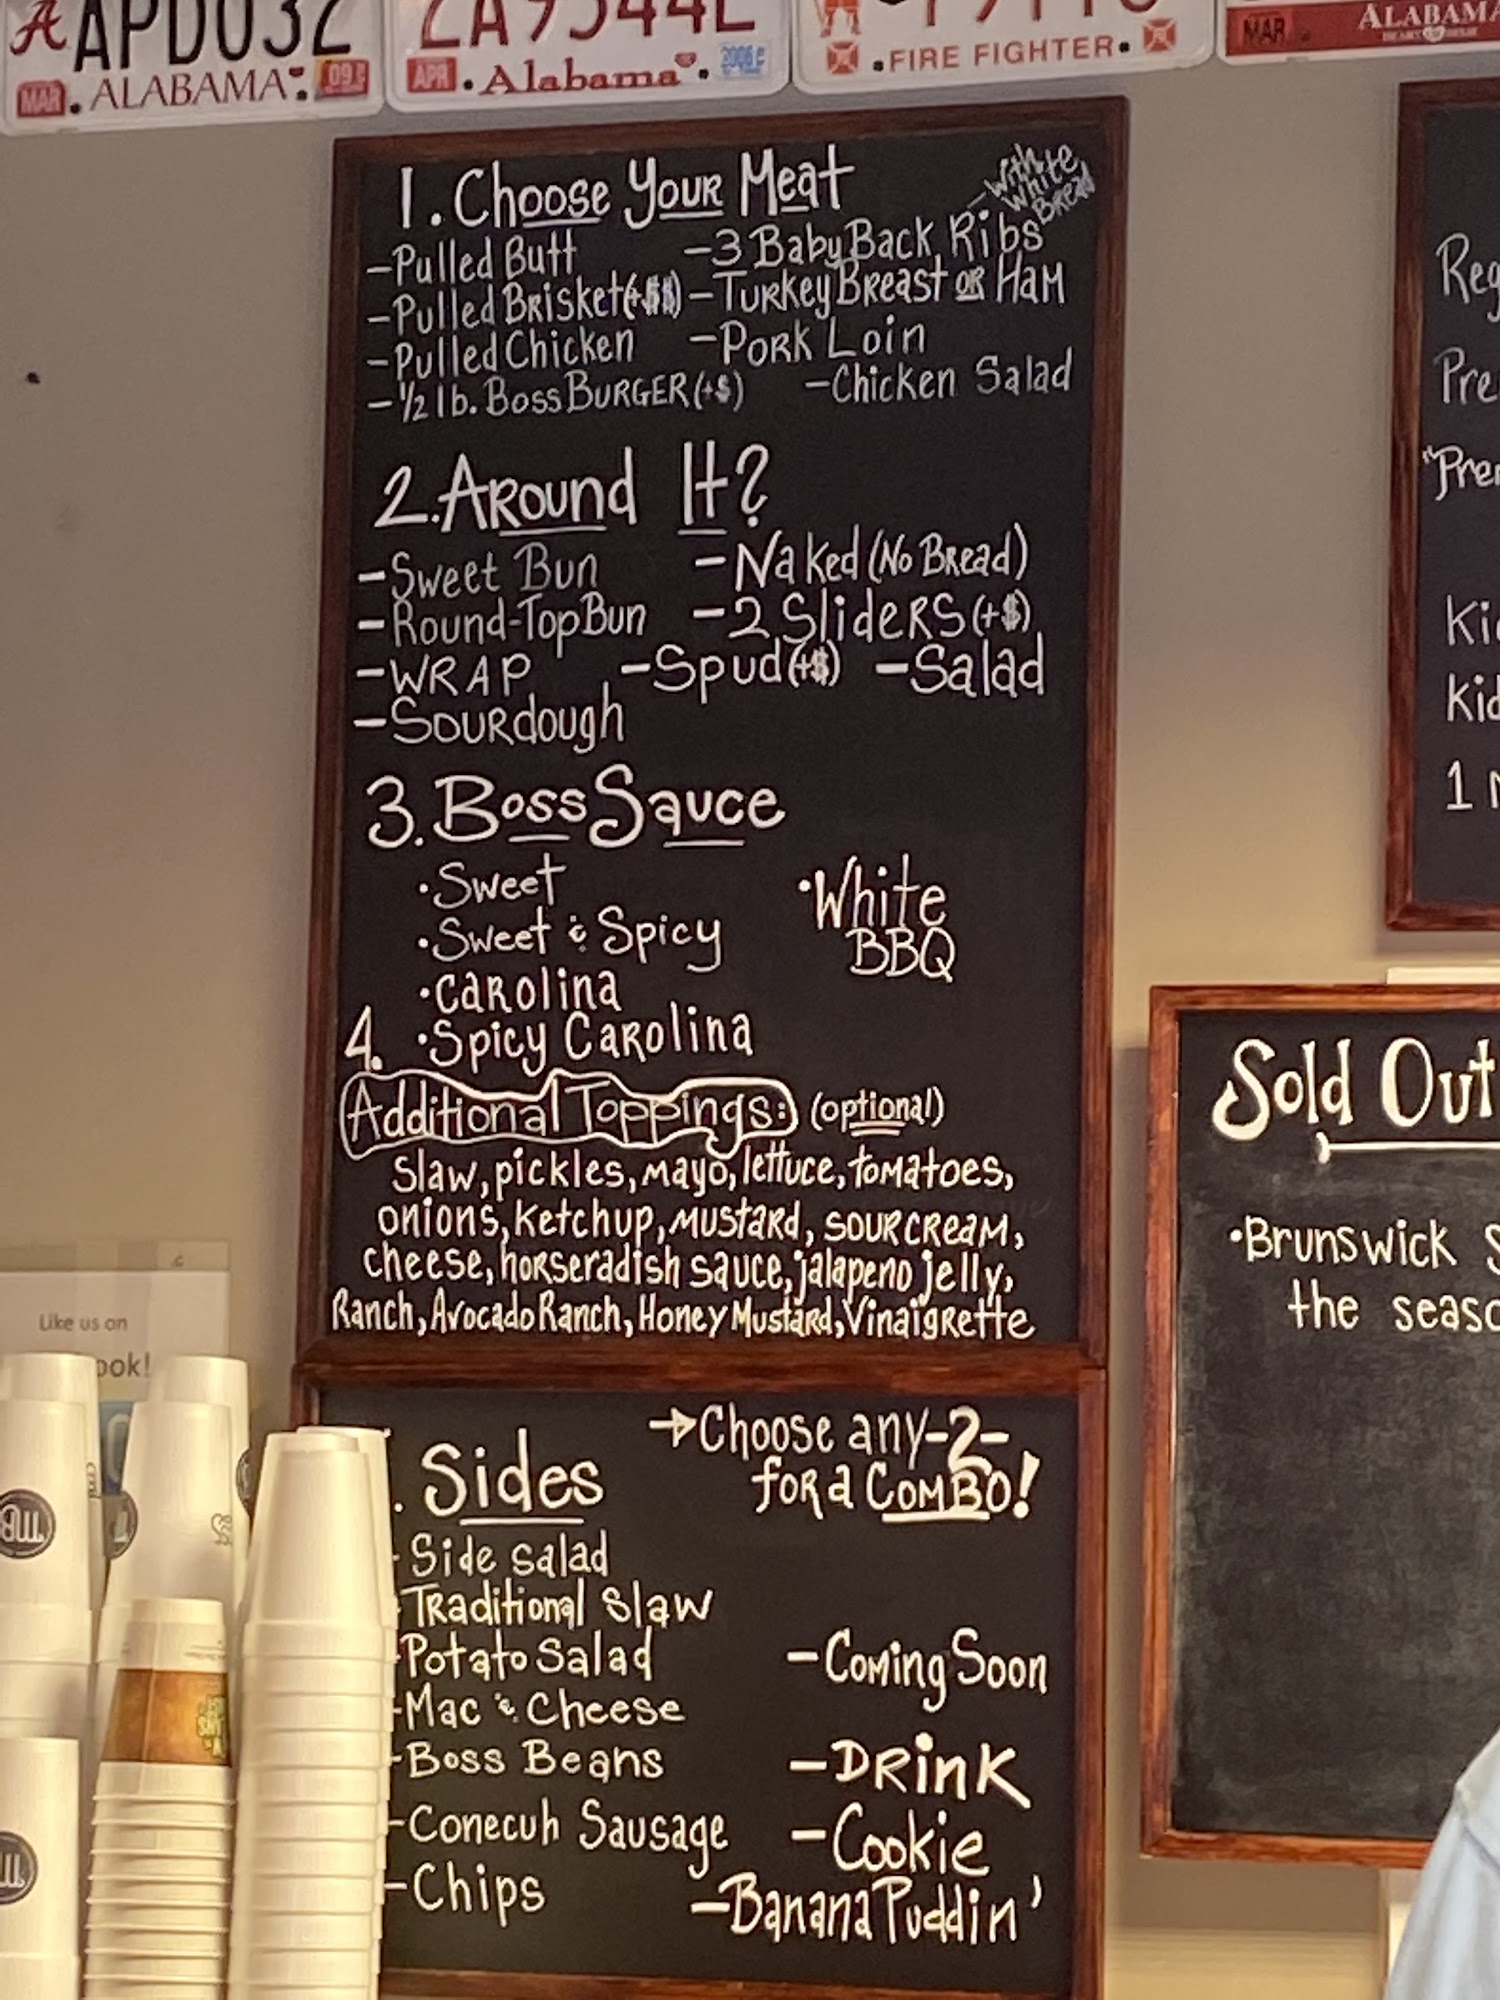 APD032
MAR ALABAMA 09
APR Alabama 2006
FIRE FIGHTER
MAR ALABAMA
1. Choose Your Meat
- With White Bread
- Pulled Butt
- 3 Baby Back Ribs
- Pulled Brisket (+$$)
- Turkey Breast or Ham
- Pulled Chicken
- Pork Loin
- 1/2 lb. Boss Burger (+$)
- Chicken Salad
2. Around It?
- Sweet Bun
- Naked (No Bread)
- Round-Top Bun
- 2 Sliders (+$)
- Wrap
- Spud (+$)
- Salad
- Sourdough
3. Boss Sauce
• Sweet
• White
BBQ
• Sweet & Spicy
• Carolina
• Spicy Carolina
4.
Additional Toppings: (optional)
Slaw, pickles, mayo, lettuce, tomatoes,
onions, ketchup, mustard, sour cream,
cheese, horseradish sauce, jalapeno jelly,
Ranch, Avocado Ranch, Honey Mustard, Vinaigrette
. Sides
→ Choose any -2-
for a Combo!
- Side salad
- Traditional Slaw
- Potato Salad
- Coming Soon
- Mac & Cheese
- Boss Beans
- Drink
- Conecuh Sausage
- Cookie
- Chips
- Banana Puddin'
Reg
Pre
"Prem
Kid
Kid
1
Sold Out
• Brunswick S
the seaso
Like us on
ook!